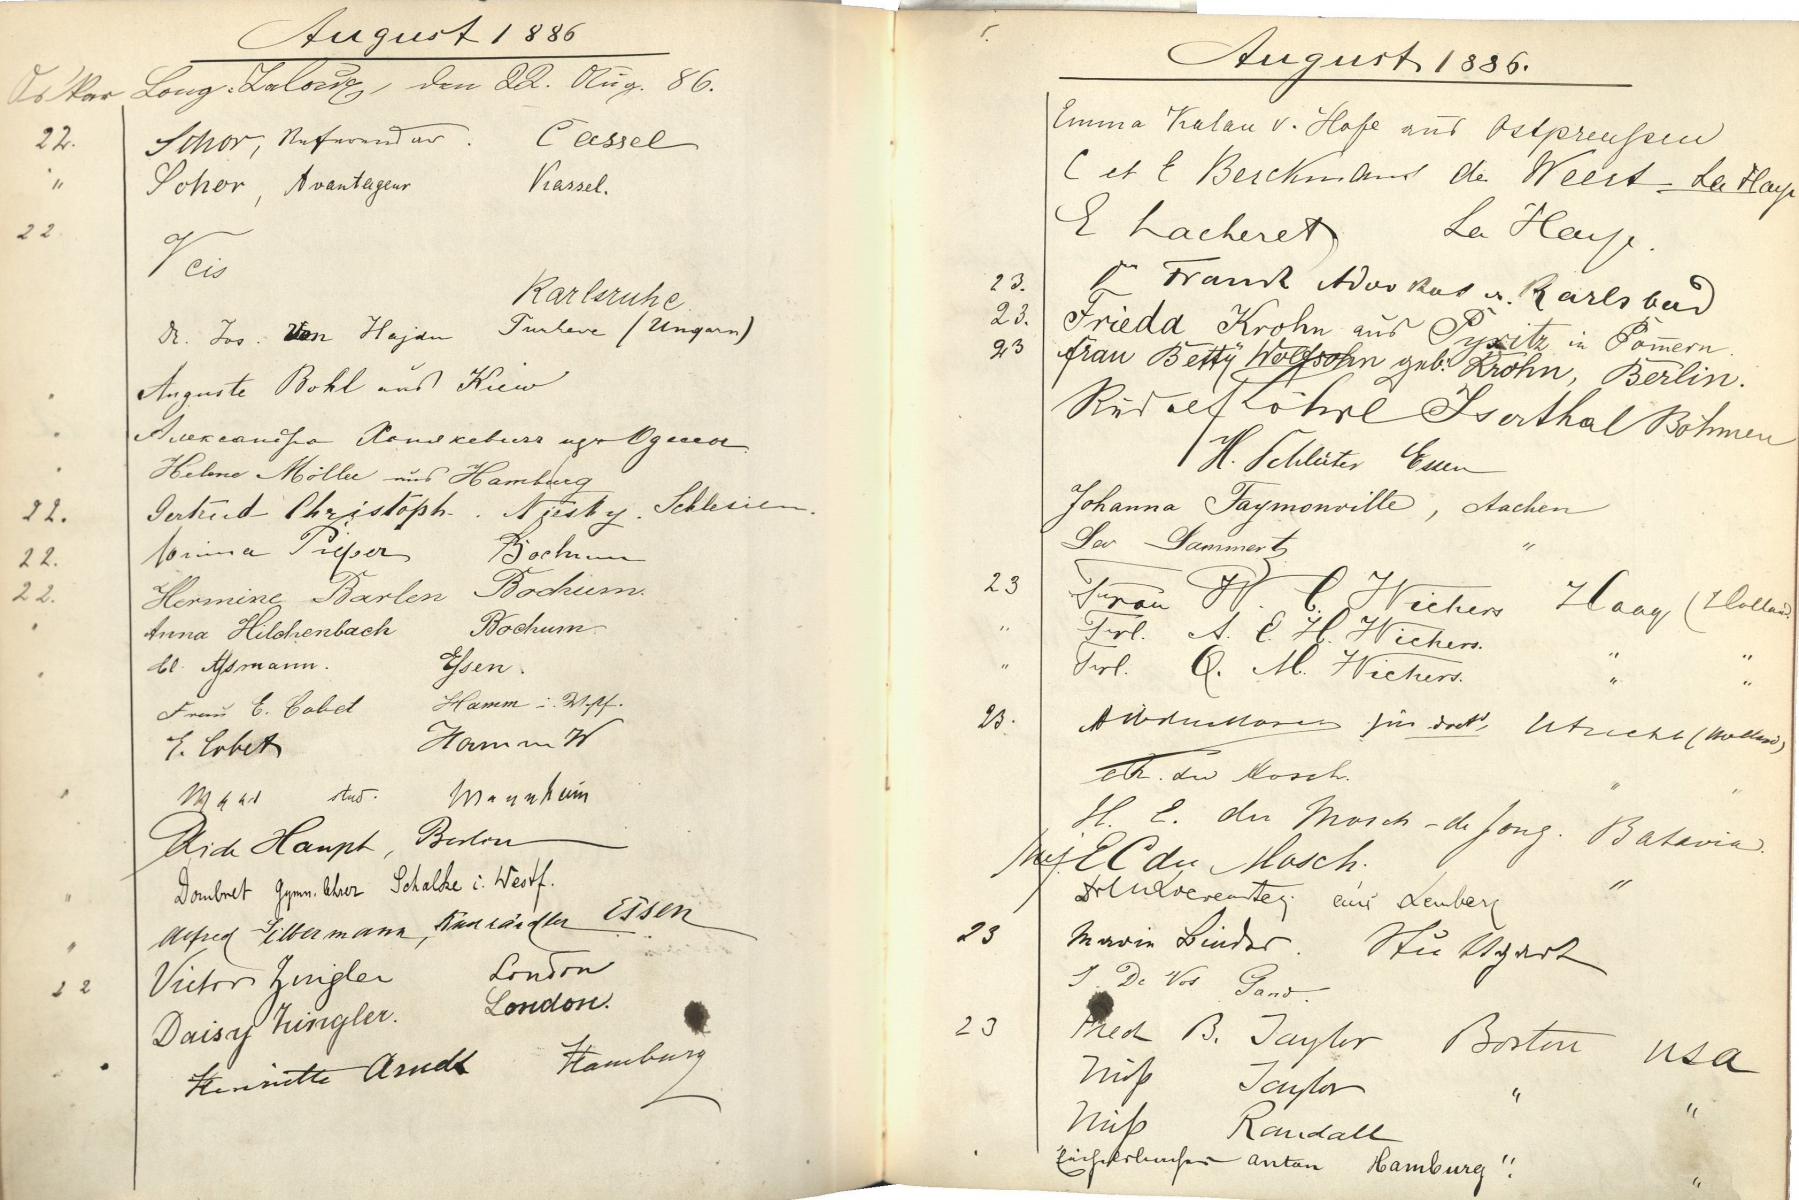 August 1886
Oskar Long. den 22. Aug. 86.
22. Schor, Referendar. Cassel
" Schor, Avantageur Kassel.
22 Veis
Karlsruhe
Dr. Jos. Von Hajdu Turkeve (Ungarn)
Auguste Bohl aus Kiew
Александра изъ Одессы
Helene Möller aus Hamburg
22. Gertrud Christoph. Niesky. Schlesien.
22. Pieper Bochum
22. Hermine Barlen Bochum.
Anna Hilchenbach Bochum
Cl. Aßmann. Eßen.
Frau E. Cobet Hamm i. Westf.
E. Cobet Hamm W
Maas stud. Mannheim
Haupt, Berlin
" Dombret Gymn. lehrer Schalke i. Westf.
" Alfred Silbermann, Essen
22 Victor Zingler London
Daisy Zingler. London.
Henriette Arndt Hamburg
August 1886.
Emma Kalau v. Hofe aus Ostpreußen
C et E Berckmans de Weert - La Haye
E Lacheret La Haye.
23. Dr Frank Advokat a. Karlsbad
23. Frieda Krohn aus Pyritz in Pom̄ern.
23 Frau Betty Wolfsohn geb. Krohn, Berlin.
Rudolf Iserthal Böhmen
H. Schlüter Essen
Johanna Faymonville, Aachen
Lammertz "
23 Frau W. C. Wichers Haag (Holland.
" Frl. A. C. H. Wichers. " "
" Frl. Q. M. Wichers. " "
23. Utrecht (Holland)
du Mosch. " "
H. E. du Mosch - de Jong. Batavia.
E C du Mosch. "
aus
23 Marie Binder. Stuttgart
J. De Vos Gand.
23 Fred B. Taylor Boston USA
Miß Taylor " "
Miß Randall
Anton Hamburg ". "